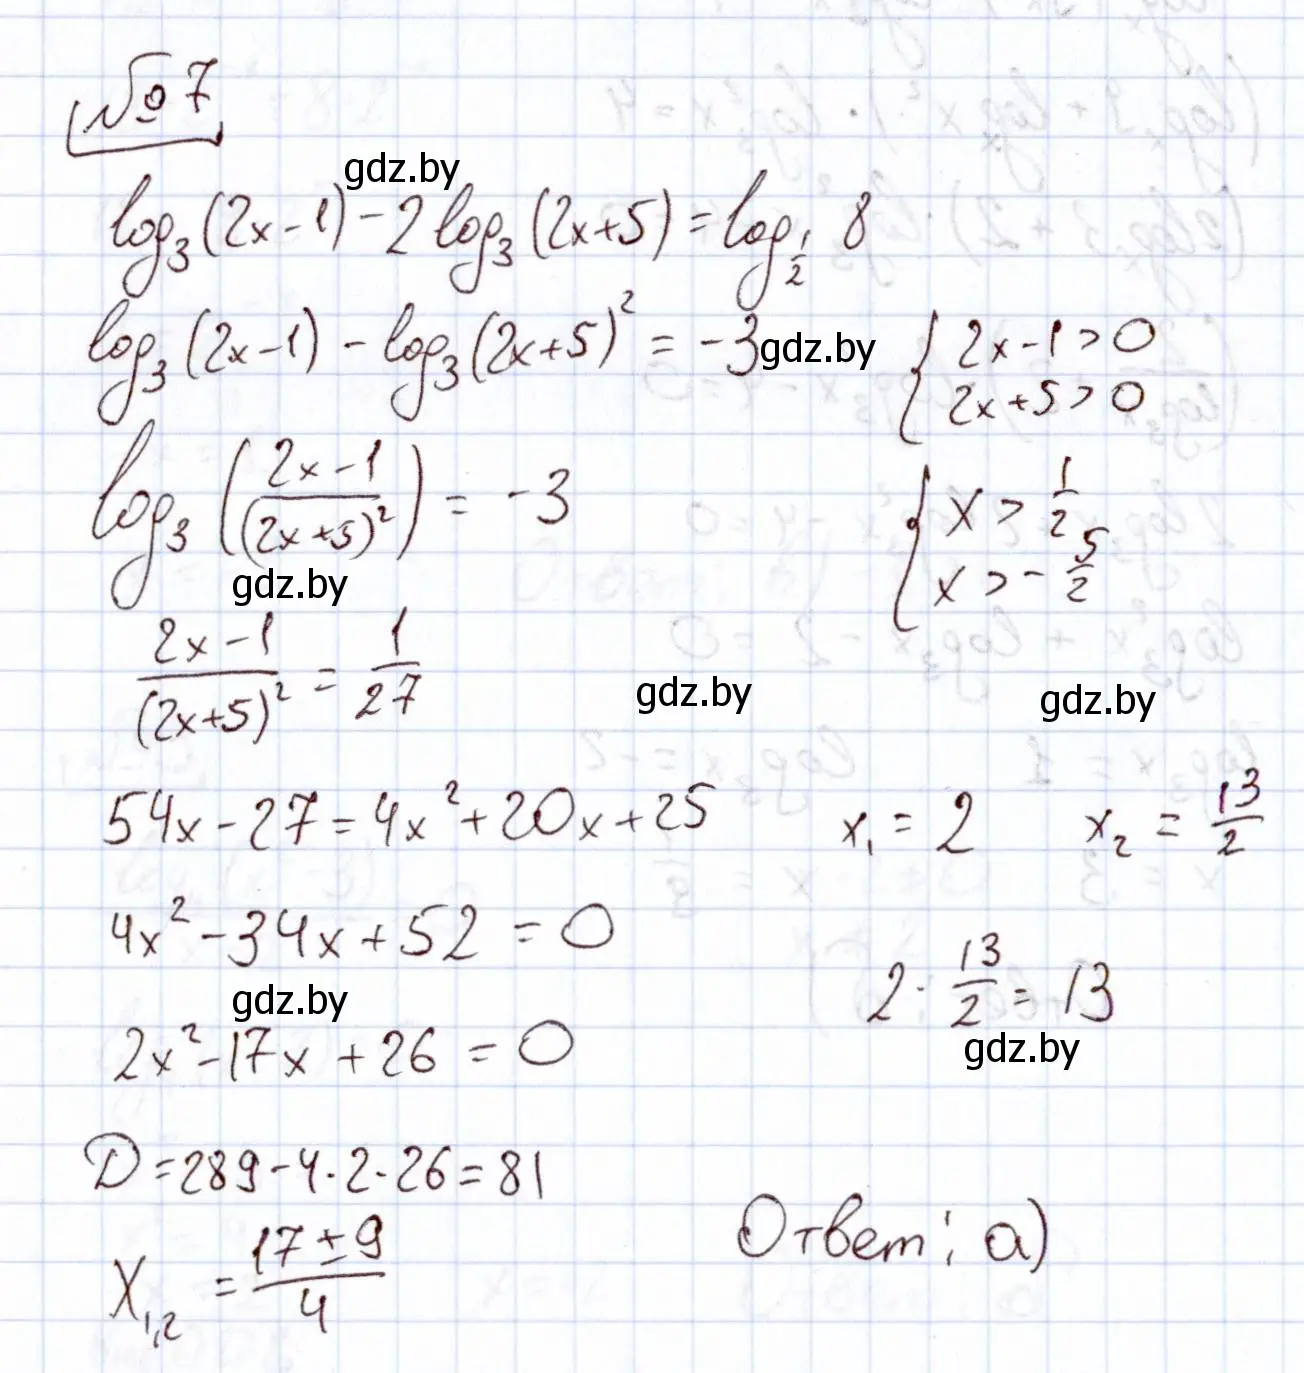 № 7
gdz.by
log₃(2x-1) - 2 log₃(2x+5) = log_{1/2} 8
log₃(2x-1) - log₃(2x+5)² = -3
gdz.by
{ 2x-1>0
2x+5>0
log₃((2x-1)/(2x+5)²) = -3
{ x > 1/2
x > -5/2
gdz.by
(2x-1)/(2x+5)² = 1/27
gdz.by
gdz.by
54x - 27 = 4x² + 20x + 25
x₁ = 2 x₂ = 13/2
4x² - 34x + 52 = 0
2 · 13/2 = 13
gdz.by
gdz.by
2x² - 17x + 26 = 0
D = 289 - 4·2·26 = 81
Ответ: а)
x₁,₂ = (17 ± 9)/4